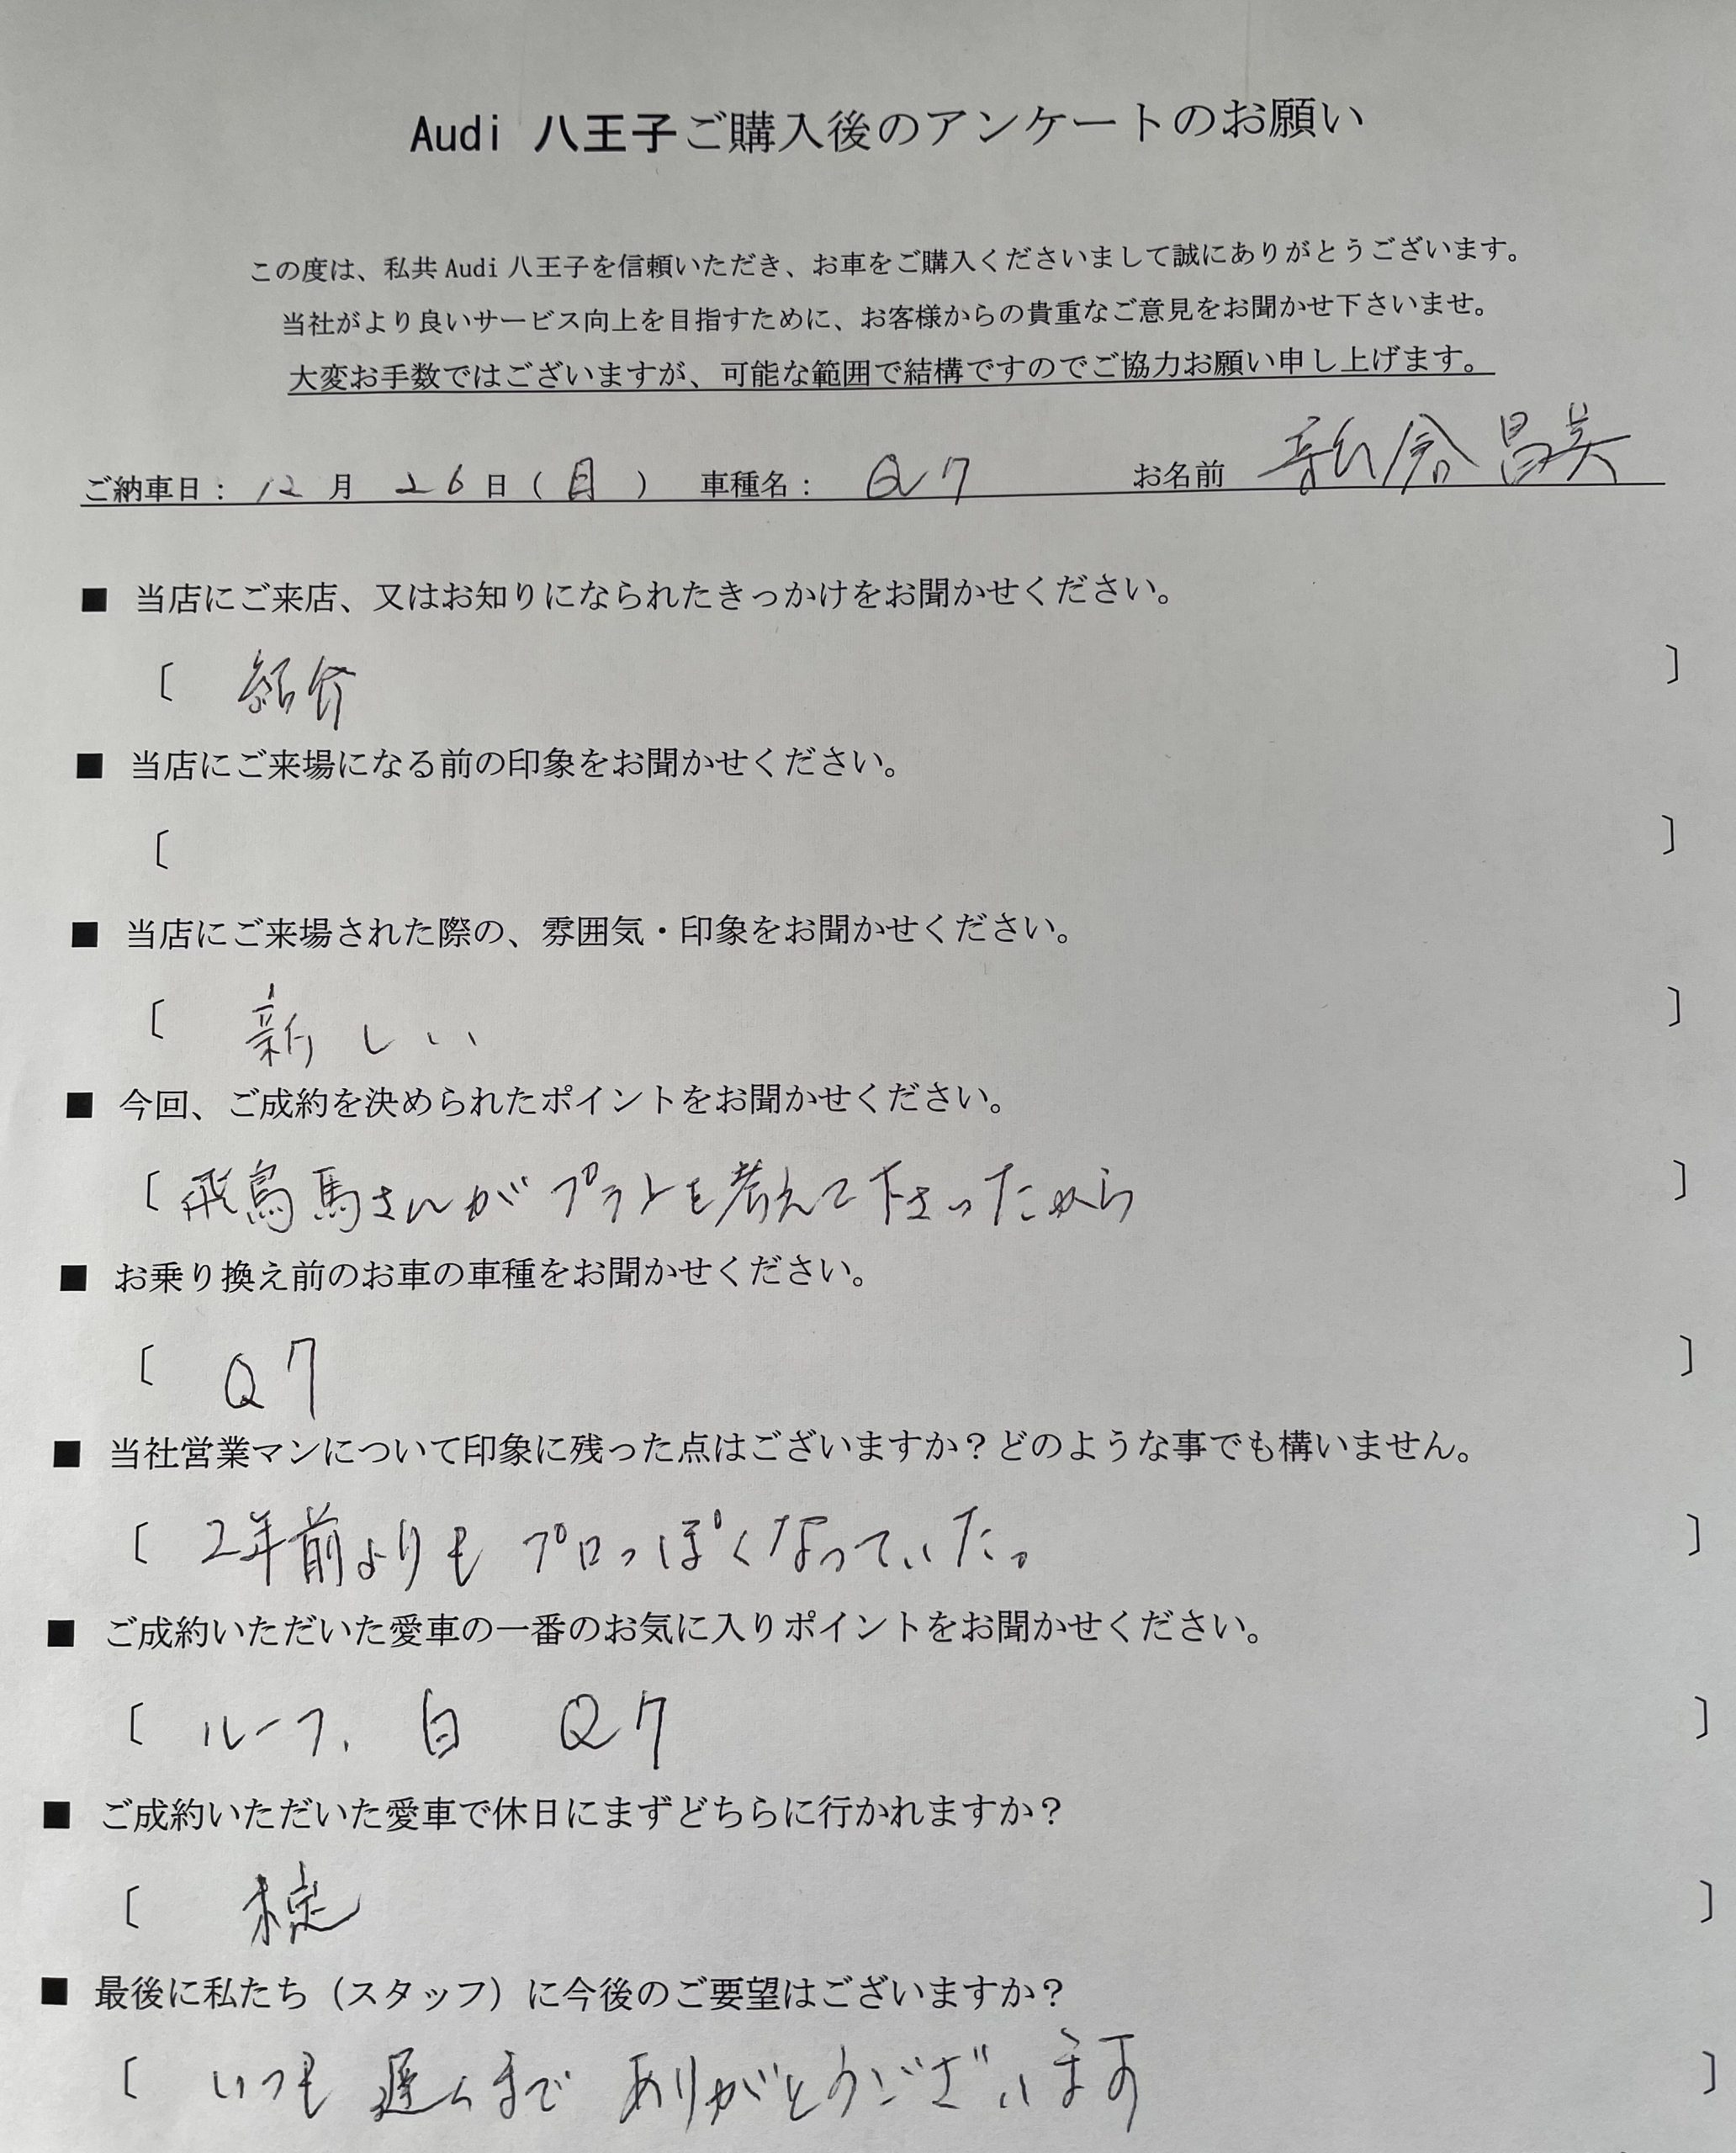 Audi 八王子ご購入後のアンケートのお願い
この度は、私共 Audi 八王子を信頼いただき、お車をご購入くださいまして誠にありがとうございます。
当社がより良いサービス向上を目指すために、お客様からの貴重なご意見をお聞かせ下さいませ。
大変お手数ではございますが、可能な範囲で結構ですのでご協力お願い申し上げます。
ご納車日： 12 月 26 日（ 日 ） 車種名： Q7 お名前 新倉 昌美
■ 当店にご来店、又はお知りになられたきっかけをお聞かせください。
〔 紹介 〕
■ 当店にご来場になる前の印象をお聞かせください。
〔 〕
■ 当店にご来場された際の、雰囲気・印象をお聞かせください。
〔 新しい 〕
■ 今回、ご成約を決められたポイントをお聞かせください。
〔 飛鳥馬さんがプランを考えて下さったから 〕
■ お乗り換え前のお車の車種をお聞かせください。
〔 Q7 〕
■ 当社営業マンについて印象に残った点はございますか？どのような事でも構いません。
〔 2年前よりも プロっぽくなっていた。 〕
■ ご成約いただいた愛車の一番のお気に入りポイントをお聞かせください。
〔 ルーフ、 白 Q7 〕
■ ご成約いただいた愛車で休日にまずどちらに行かれますか？
〔 未定 〕
■ 最後に私たち（スタッフ）に今後のご要望はございますか？
〔 いつも 遅くまで ありがとうございます 〕